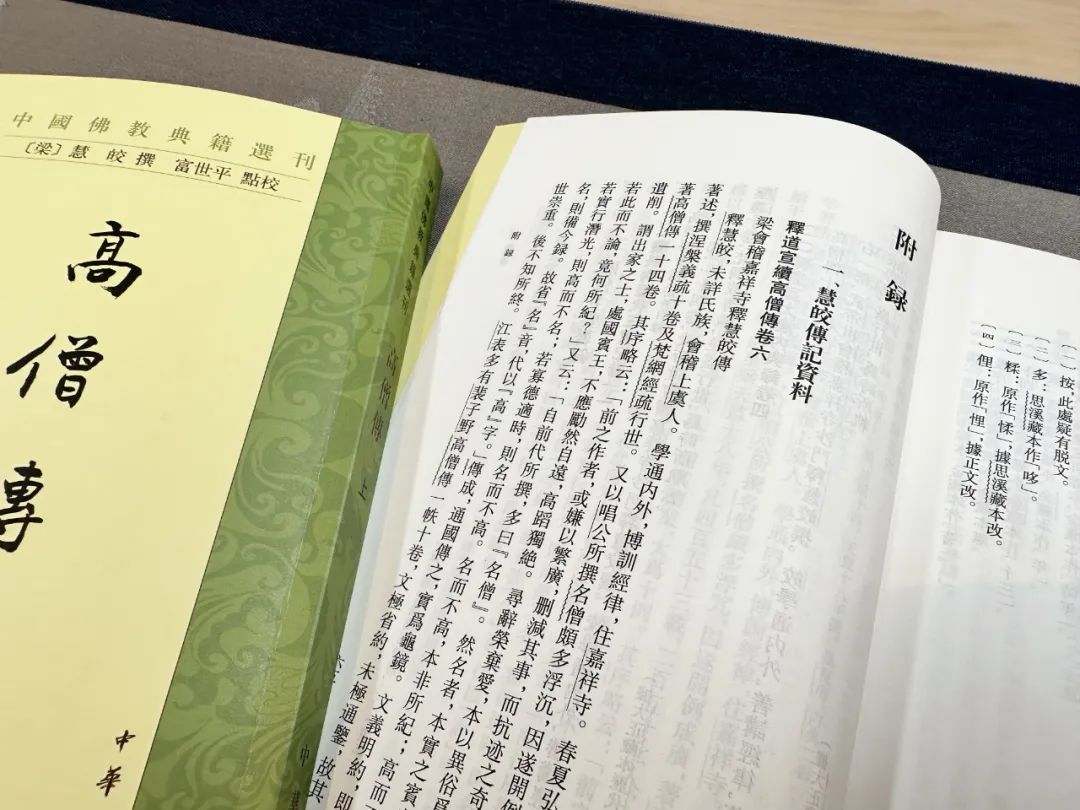 中國佛教典籍選刊
〔梁〕慧皎撰 富世平點校
高僧傳
中華
中國佛教典籍選刊 高僧傳 上
中
〔一〕按：此處疑有脱文。
〔二〕多：思溪藏本作「哆」。
〔三〕糅：原作「㥌」，據思溪藏本改。
〔四〕俚：原作「悝」，據正文改。
附録
一、慧皎傳記資料
釋道宣續高僧傳卷六
梁會稽嘉祥寺釋慧皎傳
釋慧皎，未詳氏族，會稽上虞人。學通内外，博訓經律，住嘉祥寺。春夏弘
著述，撰涅槃義疏十卷及梵網經疏行世。又以唱公所撰名僧頗多浮沉，因遂開例
著高僧傳一十四卷。其序略云：「前之作者，或嫌以繁廣，刪減其事，而抗迹之奇
遺削。謂出家之士，處國賓王，不應勵然自遠，高蹈獨絶。尋辭榮棄愛，本以異俗爲
若此而不論，竟何所紀？」又云：「自前代所撰，多曰『名僧』。然名者，本實之賓
若實行潛光，則高而不名；若寡德適時，則名而不高。名而不高，本非所紀；高而不
名，則備今録。故省『名』音，代以『高』字。」傳成，通國傳之，實爲龜鏡。文義明約，即
世崇重。後不知所終。江表多有裴子野高僧傳一帙十卷，文極省約，未極通鑒，故其
附録